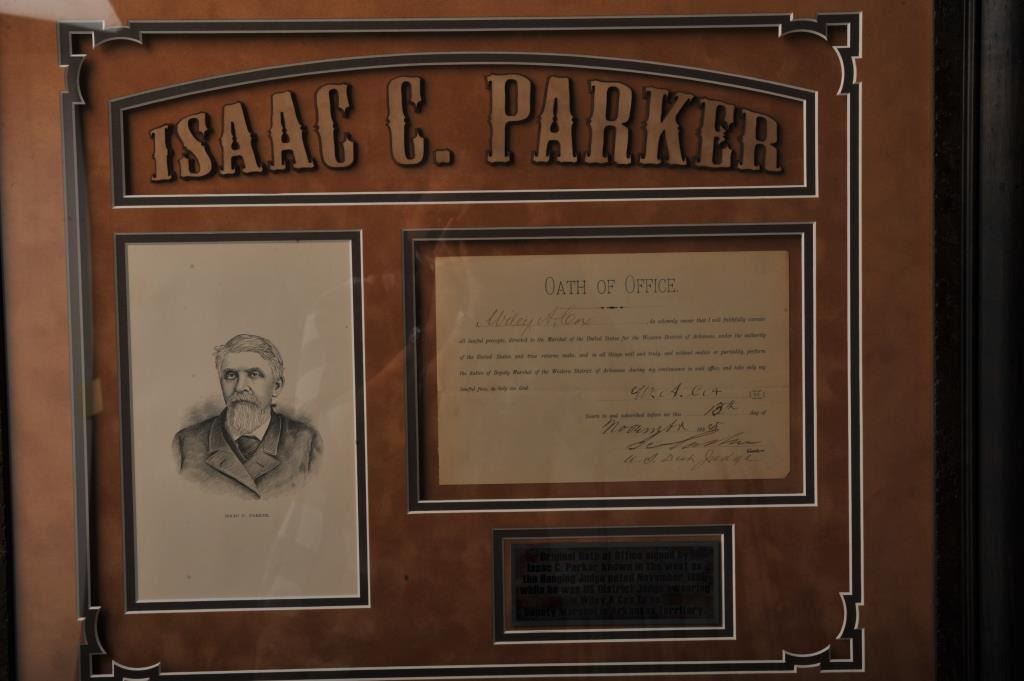 ISAAC C. PARKER
OATH OF OFFICE.
I, Wiley A. Cox, do solemnly swear that I will faithfully execute
all lawful precepts, directed to the Marshal of the United States for the Western District of Arkansas, under the authority
of the United States and true returns make, and in all things well and truly, and without malice or partiality, perform
the duties of Deputy Marshal of the Western District of Arkansas during my continuance in said office, and take only my
lawful fees, so help me God.
W. A. Cox
Sworn to and subscribed before me this 13th day of
November 188
Parker
U.S. Dist Judge
ISAAC C. PARKER.
Original Oath of Office signed by
Isaac C. Parker known in The west as
the Hanging Judge Dated November
while he was US District Judge swearing
in Wiley A Cox to be
Deputy Marshal in Arkansas Territory